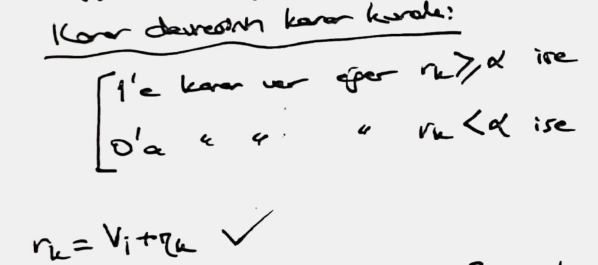 Karar devresinin karar kuralı:
1'e karar ver eğer rₖ ≥ α ise
0'a " " " rₖ < α ise
rₖ = Vᵢ + ηₖ ✓